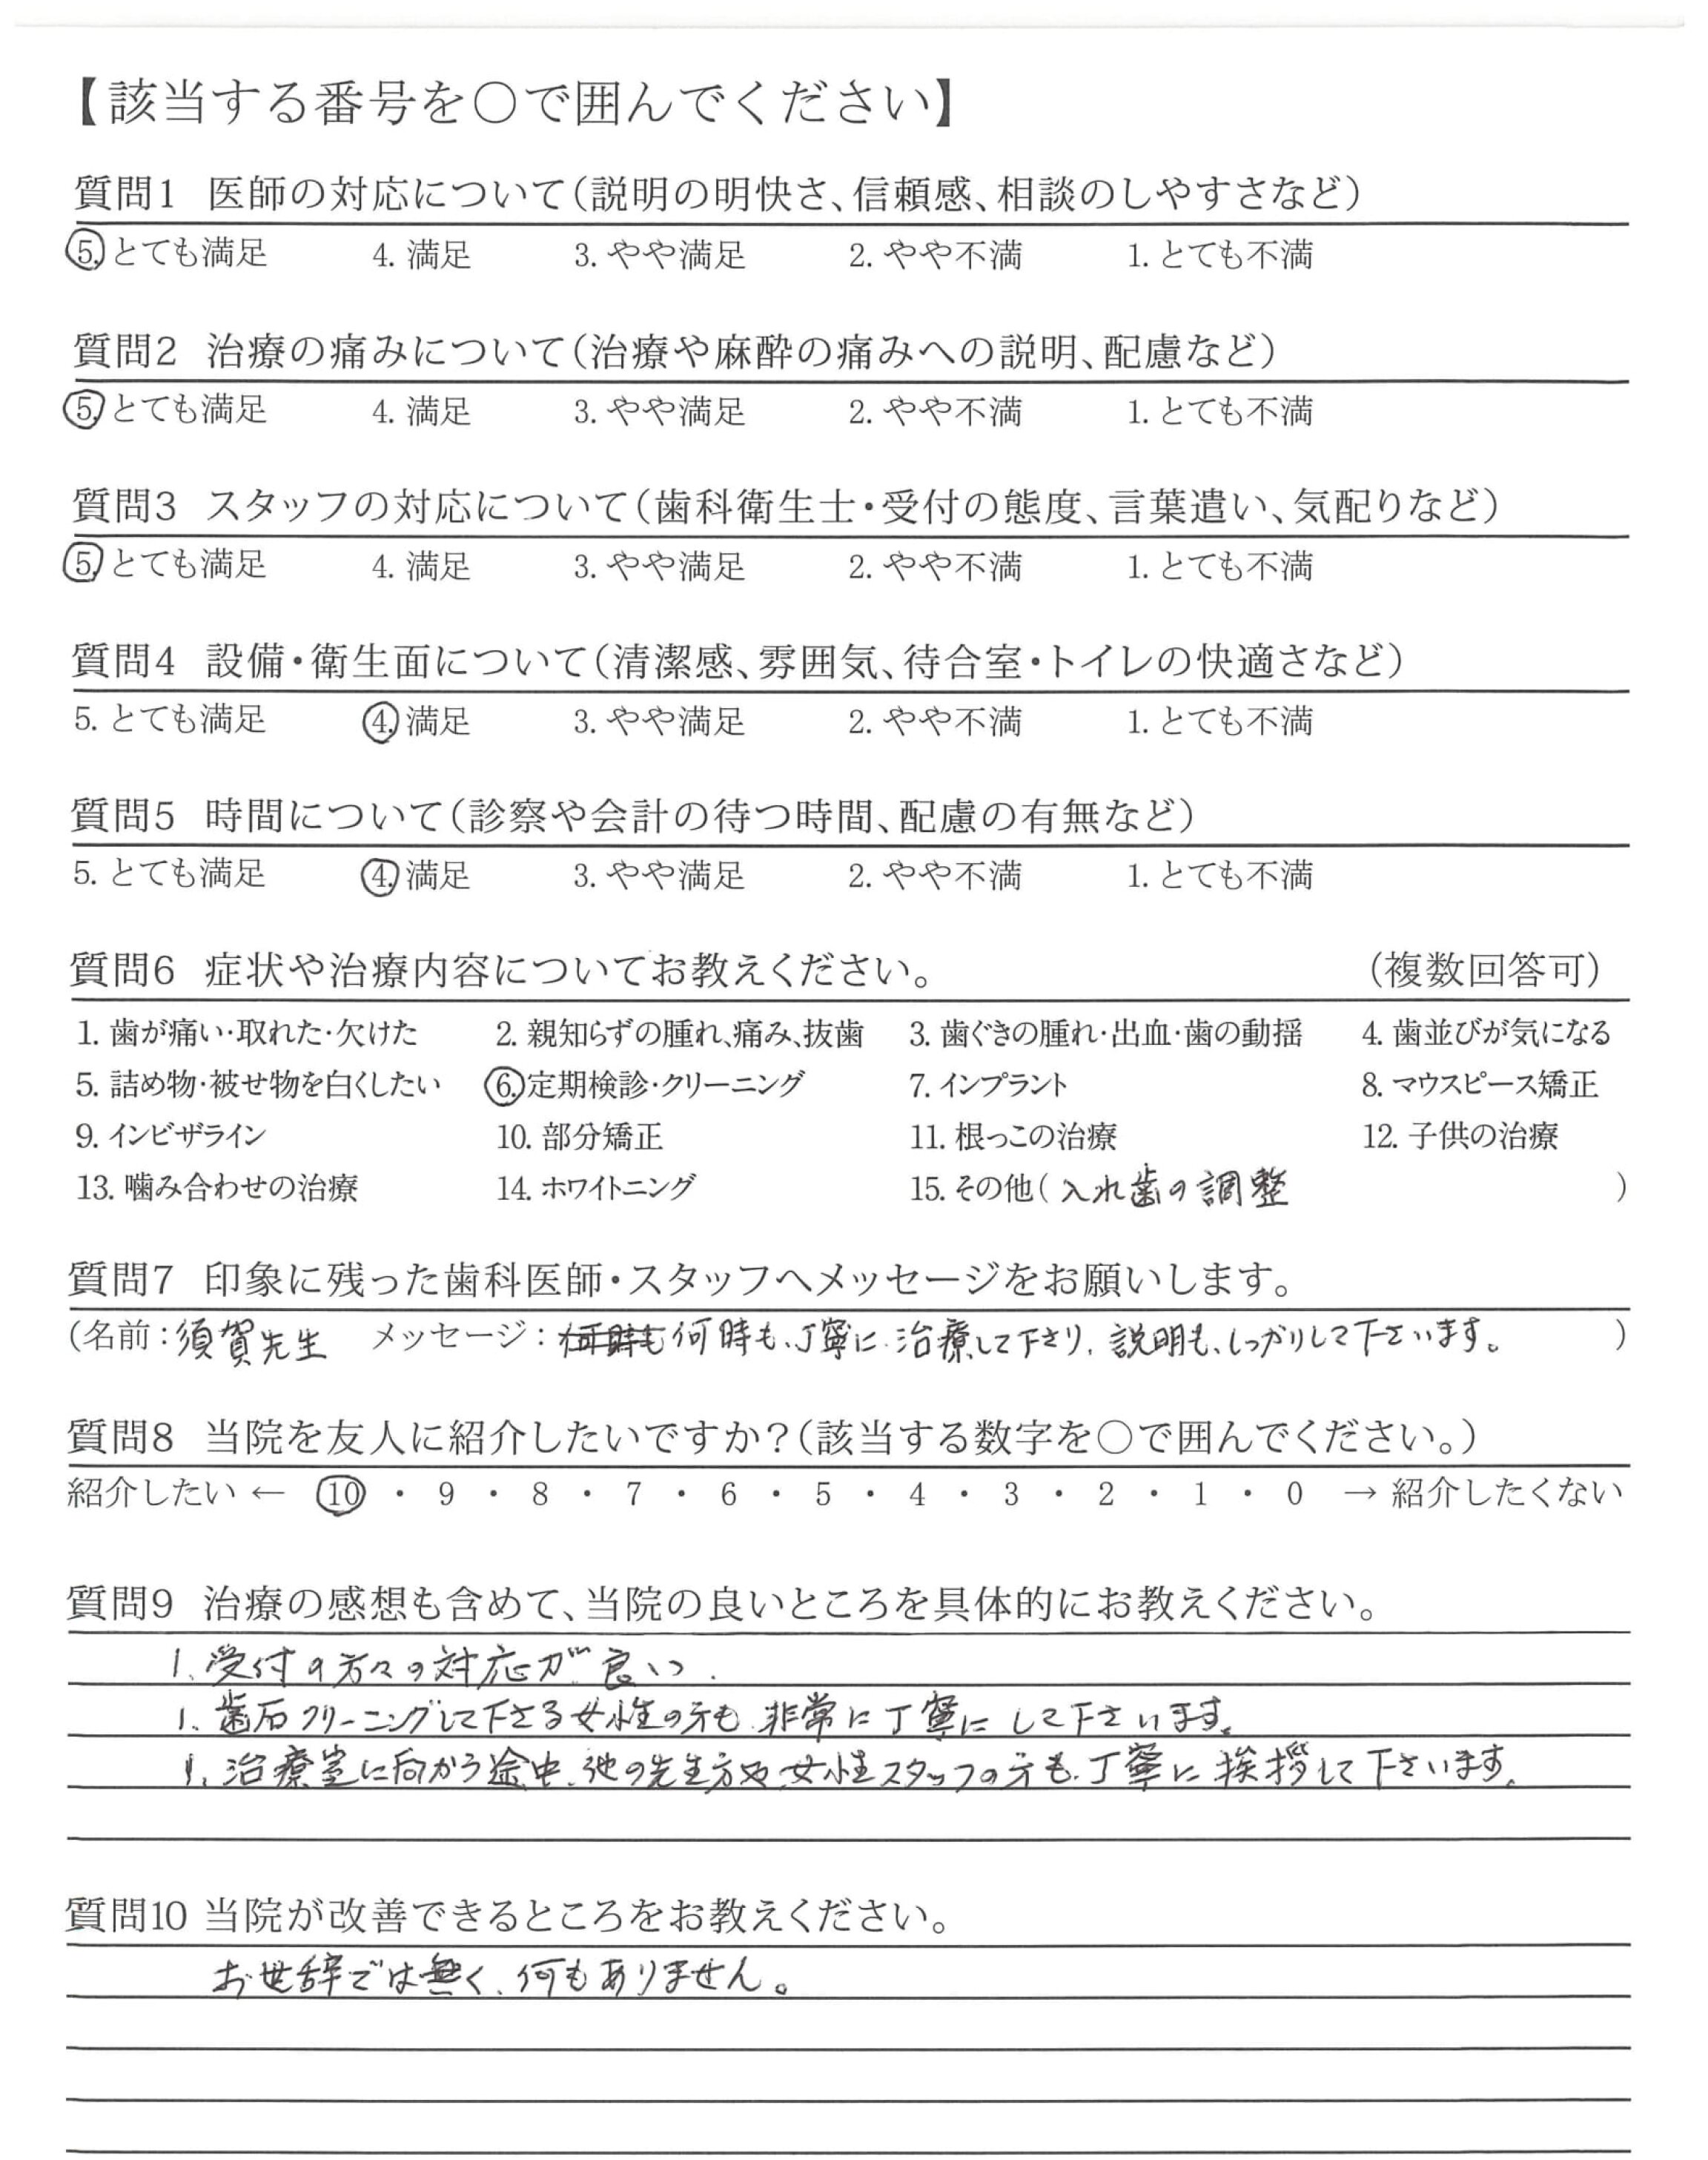 【該当する番号を〇で囲んでください】
質問1 医師の対応について(説明の明快さ、信頼感、相談のしやすさなど)
5. とても満足 4. 満足 3. やや満足 2. やや不満 1. とても不満
質問2 治療の痛みについて(治療や麻酔の痛みへの説明、配慮など)
5. とても満足 4. 満足 3. やや満足 2. やや不満 1. とても不満
質問3 スタッフの対応について(歯科衛生士・受付の態度、言葉遣い、気配りなど)
5. とても満足 4. 満足 3. やや満足 2. やや不満 1. とても不満
質問4 設備・衛生面について(清潔感、雰囲気、待合室・トイレの快適さなど)
5. とても満足 4. 満足 3. やや満足 2. やや不満 1. とても不満
質問5 時間について(診察や会計の待つ時間、配慮の有無など)
5. とても満足 4. 満足 3. やや満足 2. やや不満 1. とても不満
質問6 症状や治療内容についてお教えください。 (複数回答可)
1. 歯が痛い・取れた・欠けた 2. 親知らずの腫れ、痛み、抜歯 3. 歯ぐきの腫れ・出血・歯の動揺 4. 歯並びが気になる
5. 詰め物・被せ物を白くしたい 6. 定期検診・クリーニング 7. インプラント 8. マウスピース矯正
9. インビザライン 10. 部分矯正 11. 根っこの治療 12. 子供の治療
13. 噛み合わせの治療 14. ホワイトニング 15. その他( 入れ歯の調整 )
質問7 印象に残った歯科医師・スタッフへメッセージをお願いします。
(名前:須賀先生 メッセージ: 何時も 何時も、丁寧に治療して下さり、説明も、しっかりして下さいます。 )
質問8 当院を友人に紹介したいですか?(該当する数字を〇で囲んでください。)
紹介したい ← 10 ・ 9 ・ 8 ・ 7 ・ 6 ・ 5 ・ 4 ・ 3 ・ 2 ・ 1 ・ 0 → 紹介したくない
質問9 治療の感想も含めて、当院の良いところを具体的にお教えください。
1. 受付の方々の対応が良い.
1、歯石クリーニングして下さる女性の方も、非常に丁寧にして下さいます。
1、治療室に向かう途中、他の先生方や女性スタッフの方も、丁寧に挨拶して下さいます。
質問10 当院が改善できるところをお教えください。
お世辞では無く、何もありません。